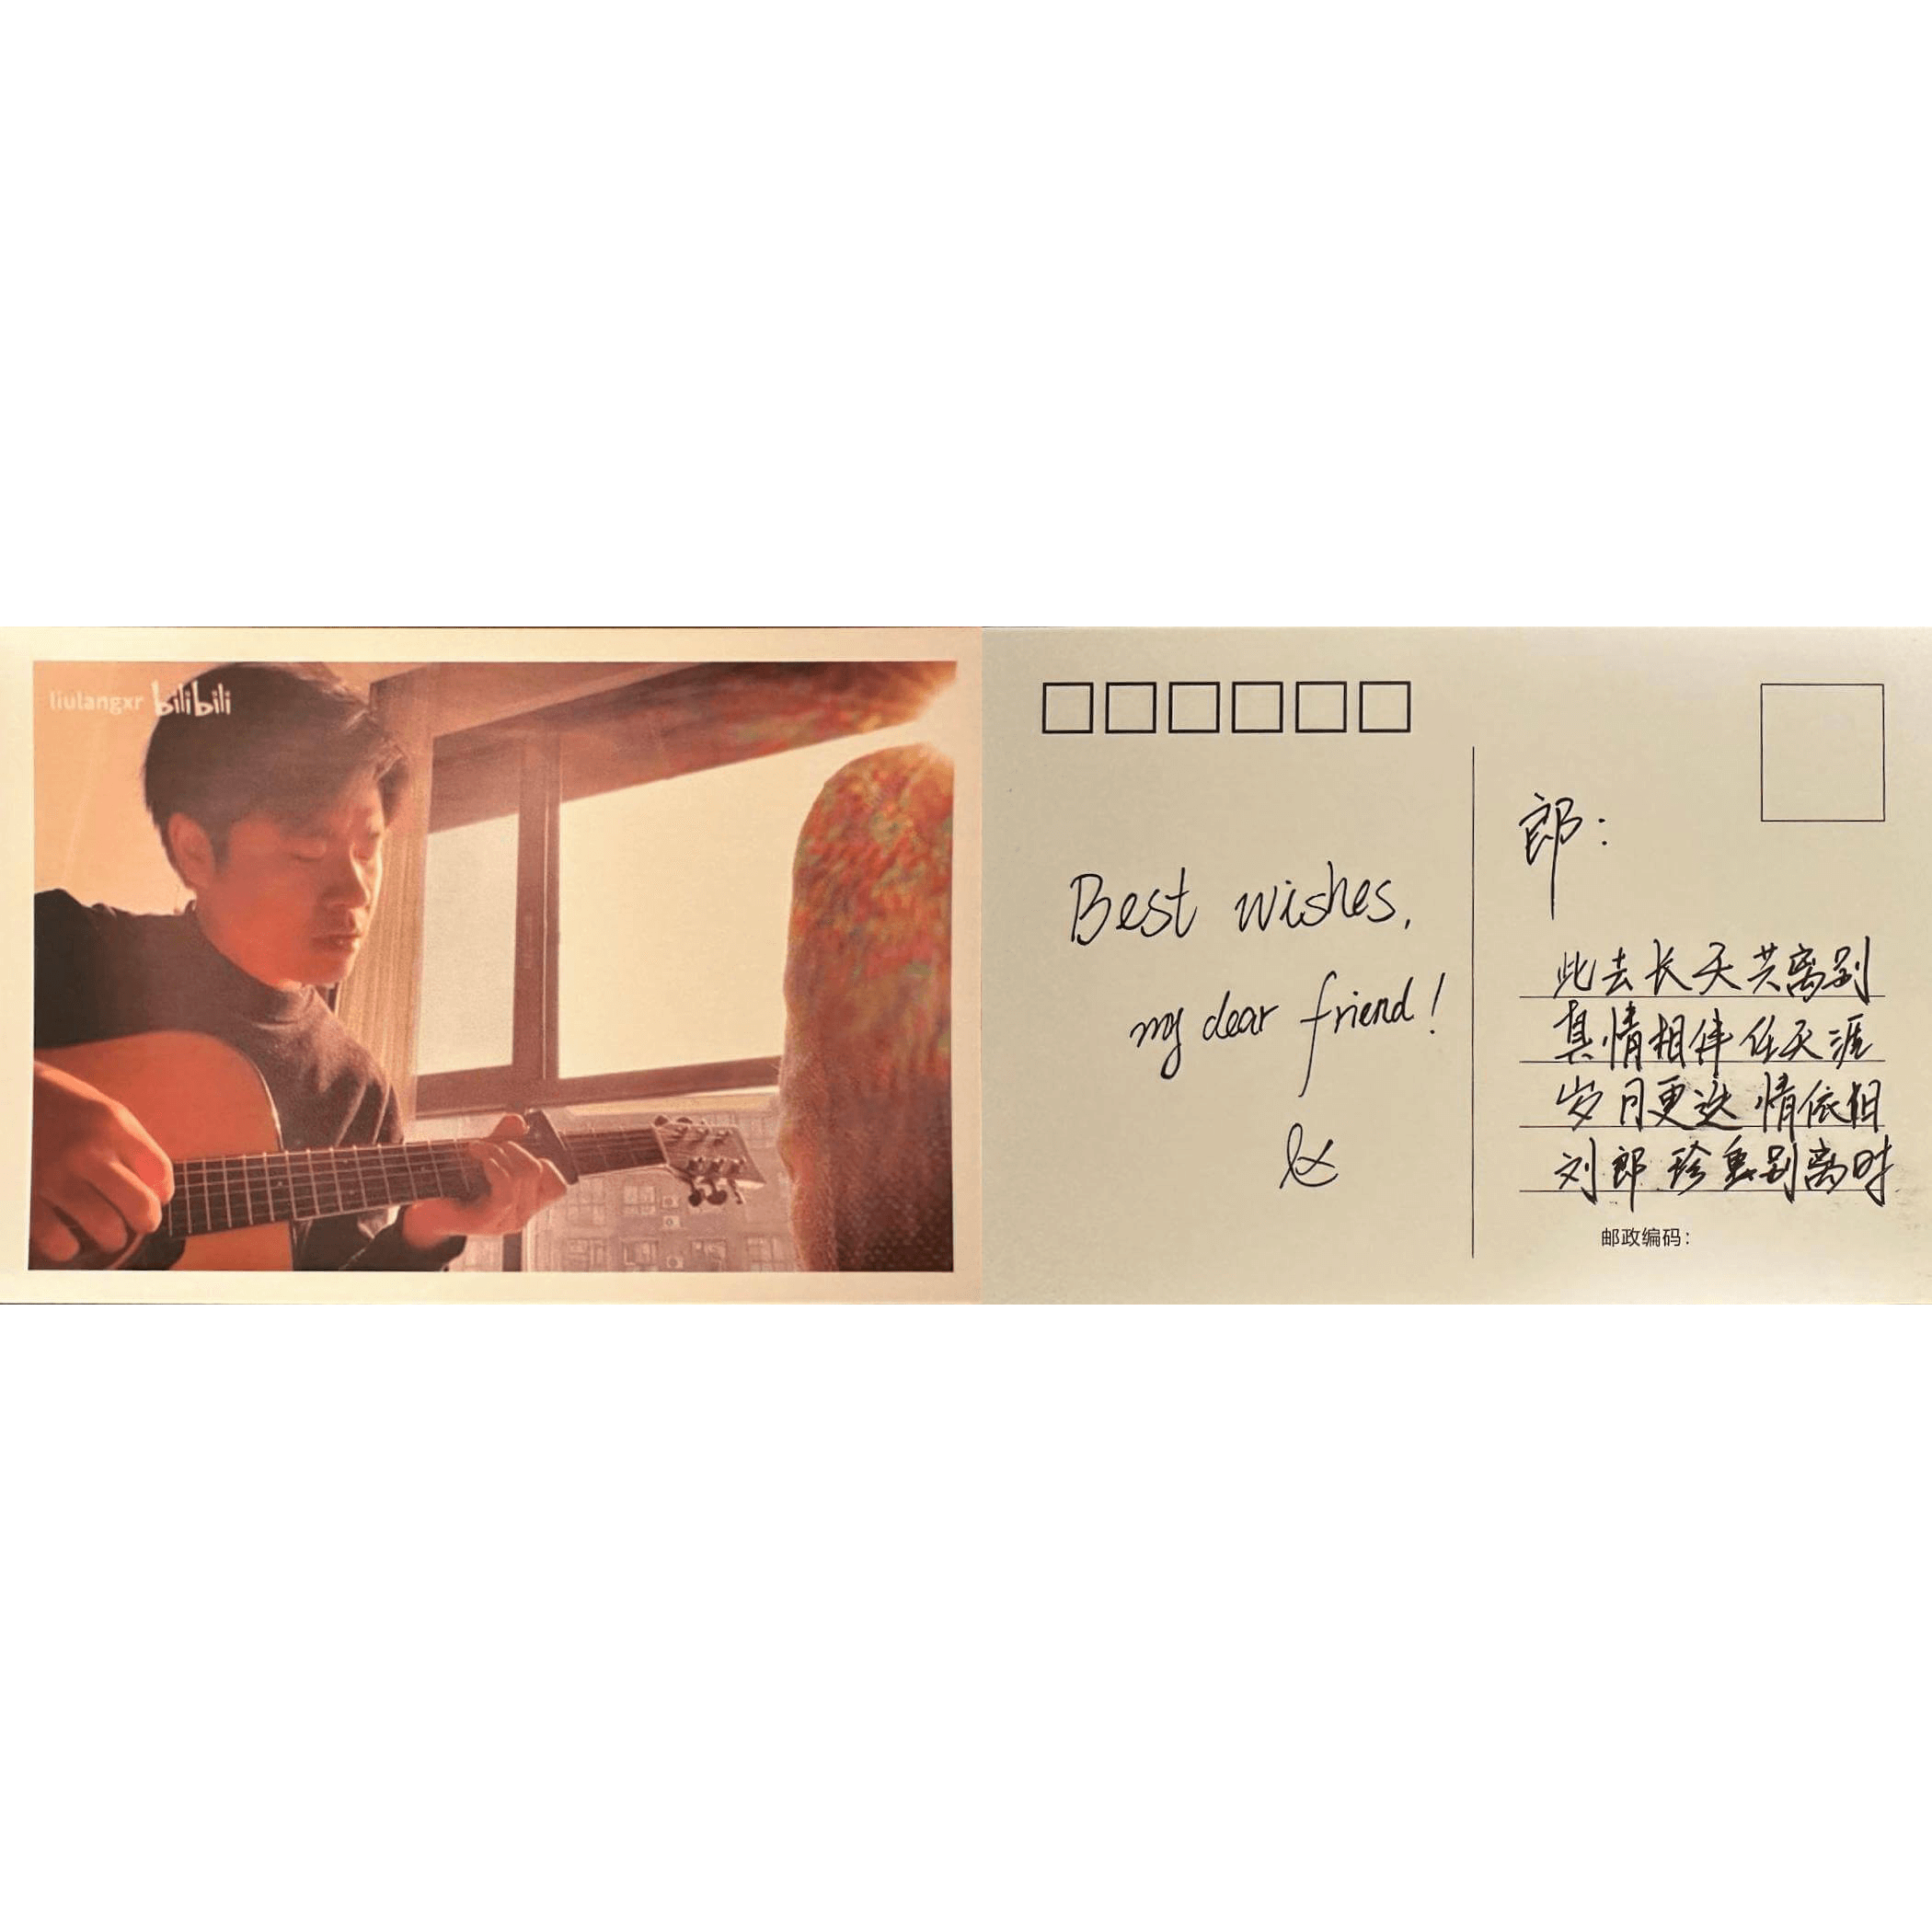 liulangxr bilibili
Best wishes,
my dear friend!
郎：
此去长天共离别
真情相伴任天涯
岁月更迭情依旧
刘郎珍重别离时
邮政编码：